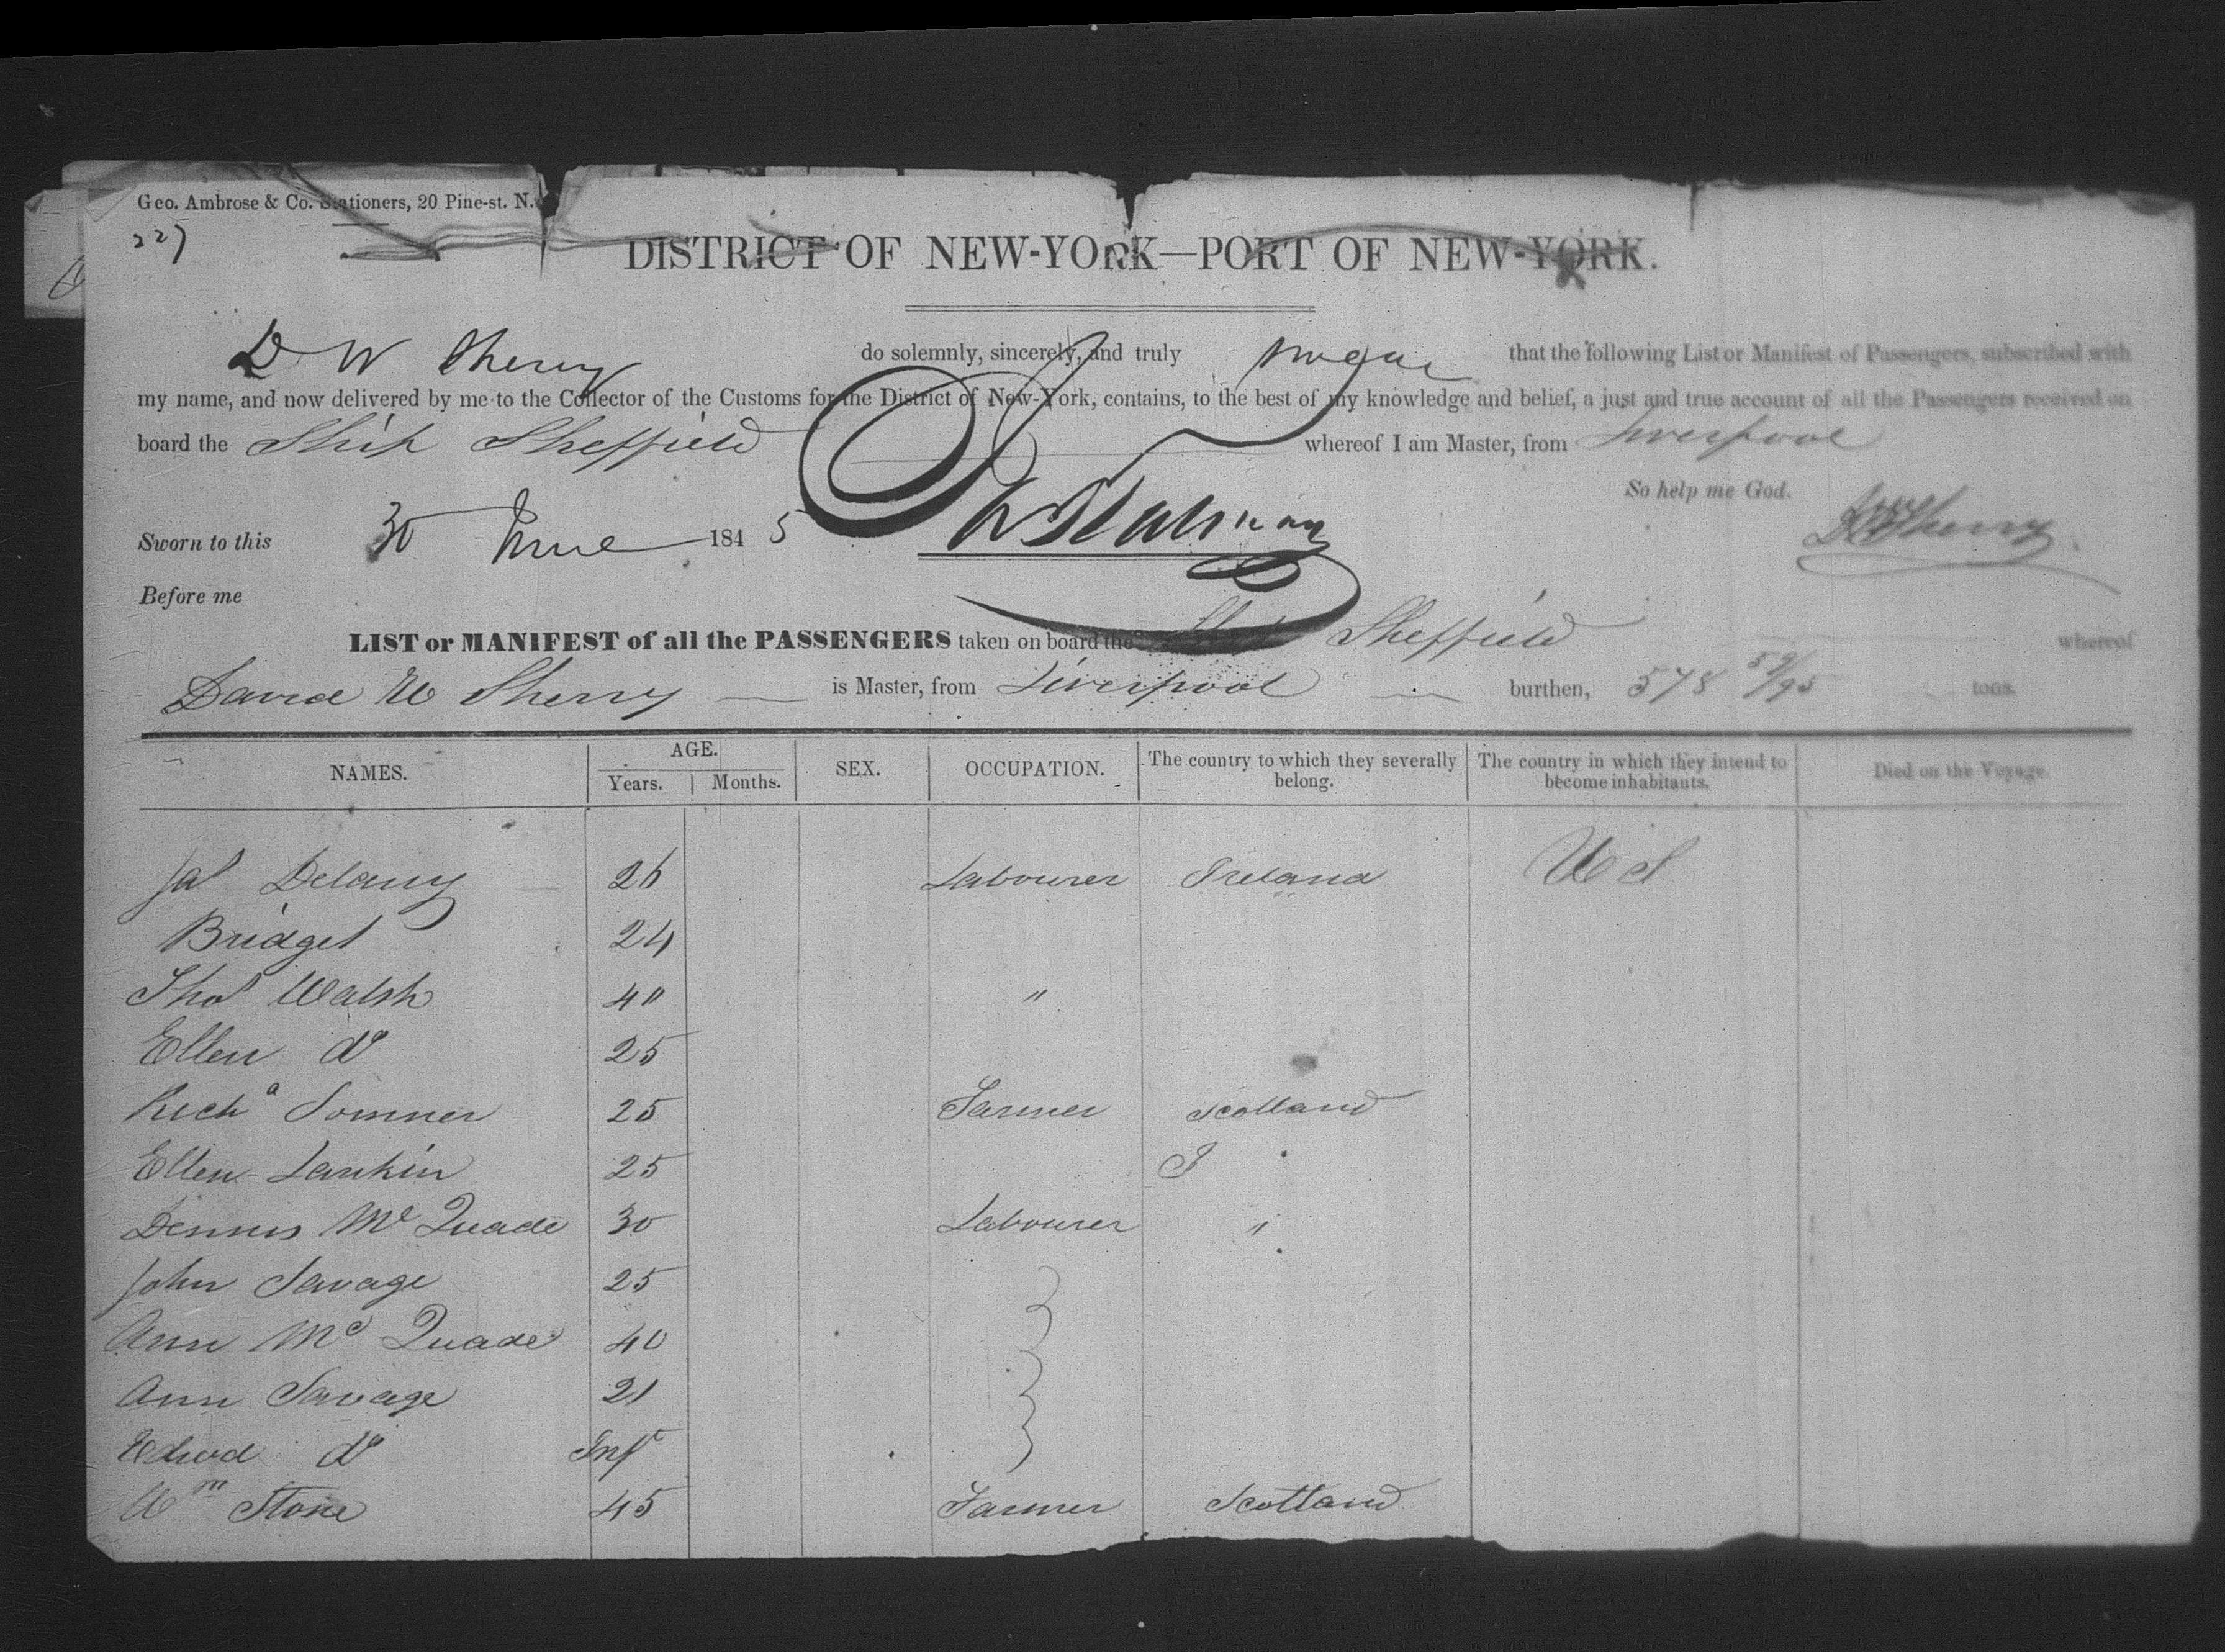 Geo. Ambrose & Co. Stationers, 20 Pine-st. N.
227
DISTRICT OF NEW-YORK—PORT OF NEW-YORK.
D W Sherry do solemnly, sincerely, and truly swear that the following List or Manifest of Passengers, subscribed with
my name, and now delivered by me to the Collector of the Customs for the District of New-York, contains, to the best of my knowledge and belief, a just and true account of all the Passengers received on
board the Ship Sheffield whereof I am Master, from Liverpool
So help me God.
Sworn to this 30 June 1845 D W Sherry
Before me
LIST or MANIFEST of all the PASSENGERS taken on board the Ship Sheffield whereof
David W Sherry is Master, from Liverpool burthen, 578 59/95 tons.
NAMES. AGE. Years. Months. SEX. OCCUPATION. The country to which they severally belong. The country in which they intend to become inhabitants. Died on the Voyage.
Jas Delany 26 Labourer Ireland U S
Bridget 24
Thos Walsh 40 "
Ellen Do 25
Richd Somner 25 Farmer Scotland
Ellen Larkin 25 I
Dennis Mc Quade 30 Labourer "
John Savage 25
Ann Mc Quade 40
Ann Savage 21
Edwd Do Inft
Wm Stone 45 Farmer Scotland